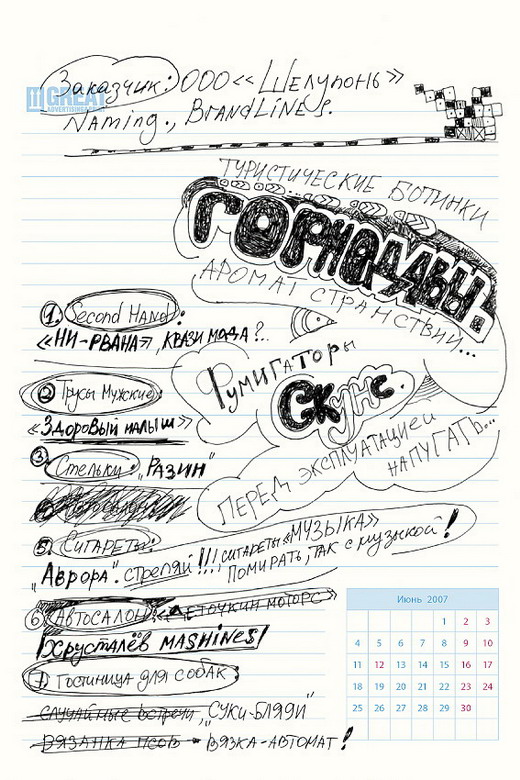 Заказчик: ООО «Шелупонь»
GREAT
ADVERTISING
Naming., BrandLines.
ТУРИСТИЧЕСКИЕ БОТИНКИ
ГОРНАДЫ.
АРОМАТ СТРАНСТВИЙ...
1. Second Hand:
«НИ-РВАНА», КВАЗИ МОДА?..
Фумигаторы
Скунс.
ПЕРЕД ЭКСПЛУАТАЦИЕЙ
НАПУГАТЬ...
2 Трусы Мужские:
«ЗДОРОВЫЙ МАЛЫШ»
3. Стельки: „РАЗИН"
5. СИГАРЕТЫ:
„АВРОРА". стреляй!!!
СИГАРЕТЫ «МУЗЫКА»
ПОМИРАТЬ, ТАК с музыкой!
6 АВТОСАЛОН: «ЦЕТОЧКИН МОТОРС»
Хрусталёв MASHINES!
7 ГОСТИНИЦА ДЛЯ СОБАК
СЛУЧАЙНЫЕ ВСТРЕЧИ „СУКИ-БЛЯДИ"
ВЯЗАНКА ПСОВ - ВЯЗКА-АВТОМАТ!
Июнь 2007
1 2 3
4 5 6 7 8 9 10
11 12 13 14 15 16 17
18 19 20 21 22 23 24
25 26 27 28 29 30